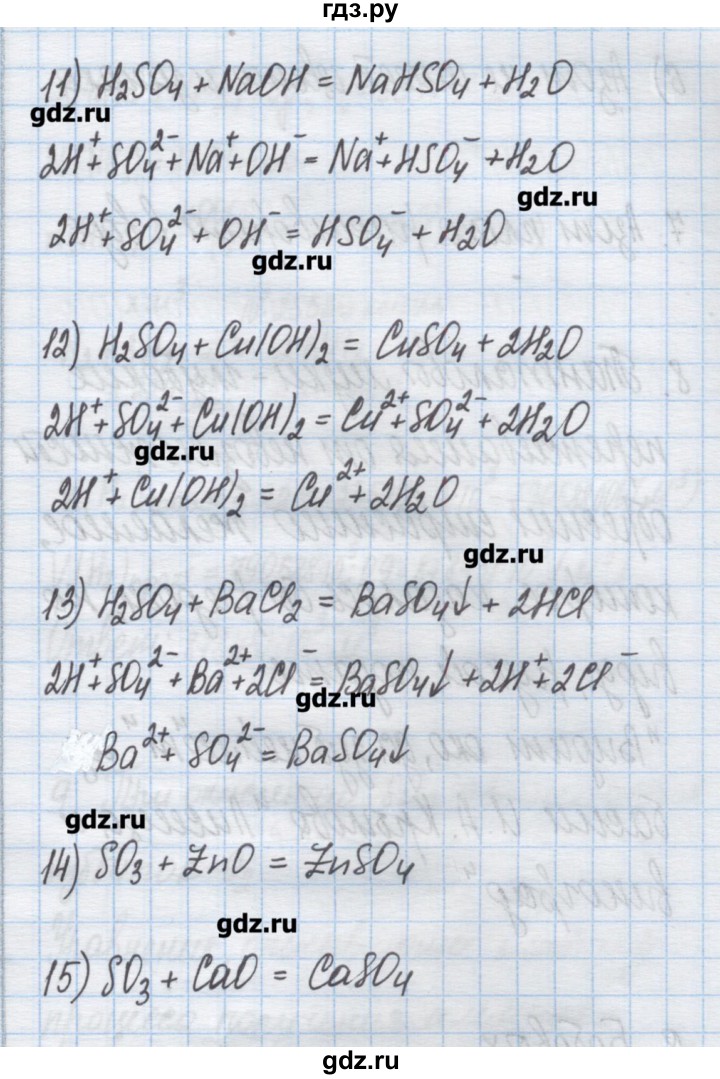 гдз.ру
11) H₂SO₄ + NaOH = NaHSO₄ + H₂O
gdz.ru
2H⁺ + SO₄²⁻ + Na⁺ + OH⁻ = Na⁺ + HSO₄⁻ + H₂O
gdz.ru
2H⁺ + SO₄²⁻ + OH⁻ = HSO₄⁻ + H₂O
gdz.ru
12) H₂SO₄ + Cu(OH)₂ = CuSO₄ + 2H₂O
2H⁺ + SO₄²⁻ + Cu(OH)₂ = Cu²⁺ + SO₄²⁻ + 2H₂O
gdz.ru
2H⁺ + Cu(OH)₂ = Cu²⁺ + 2H₂O
gdz.ru
13) H₂SO₄ + BaCl₂ = BaSO₄↓ + 2HCl
2H⁺ + SO₄²⁻ + Ba²⁺ + 2Cl⁻ = BaSO₄↓ + 2H⁺ + 2Cl⁻
gdz.ru
Ba²⁺ + SO₄²⁻ = BaSO₄↓
gdz.ru
14) SO₃ + ZnO = ZnSO₄
gdz.ru
15) SO₃ + CaO = CaSO₄
gdz.ru